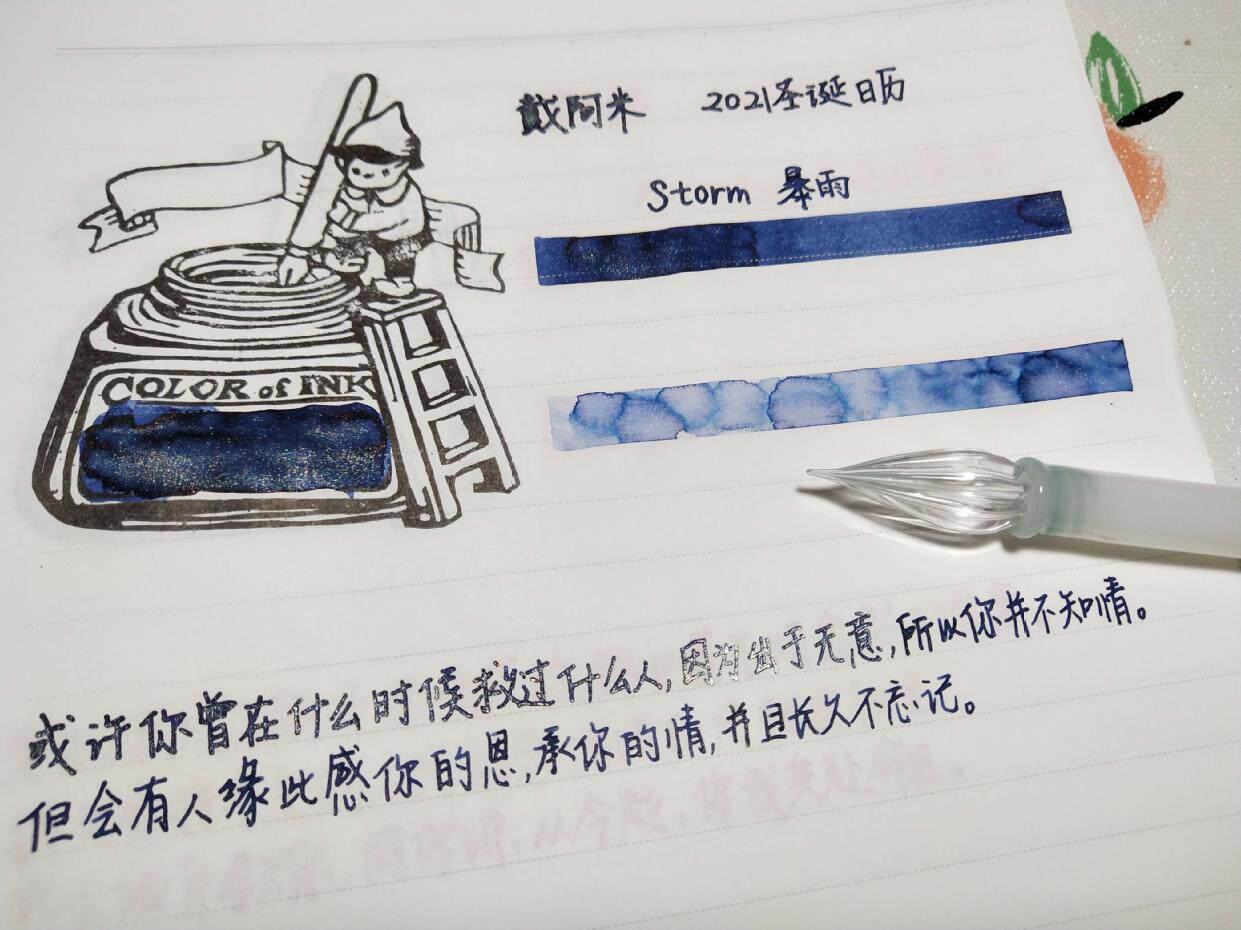 戴阿米 2021圣诞日历
Storm 暴雨
COLOR of INK
或许你曾在什么时候救过什么人,因为出于无意,所以你并不知情。
但会有人缘此感你的恩,承你的情,并且长久不忘记。